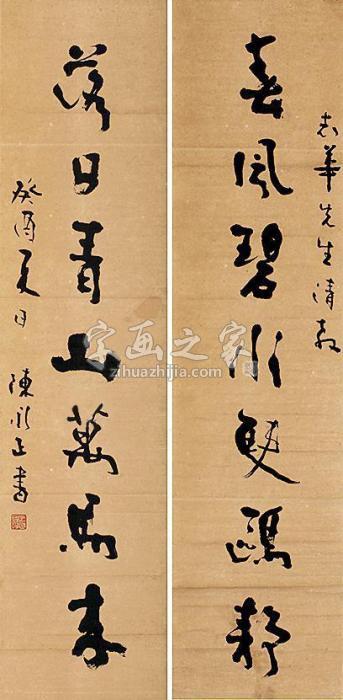 志華先生清教
春風碧水雙鷗靜
落日青山萬馬來
癸酉夏日 陳永正書
字画之家
zihuazhijia.com